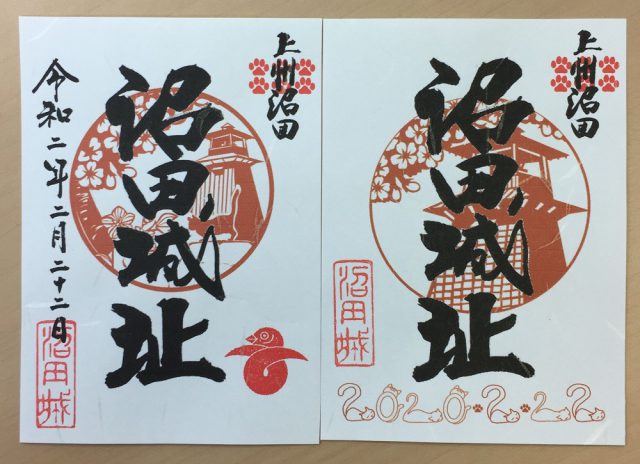 上州沼田
沼田城址
令和二年二月二十二日
沼田城
上州沼田
沼田城址
沼田城
2020.2.22